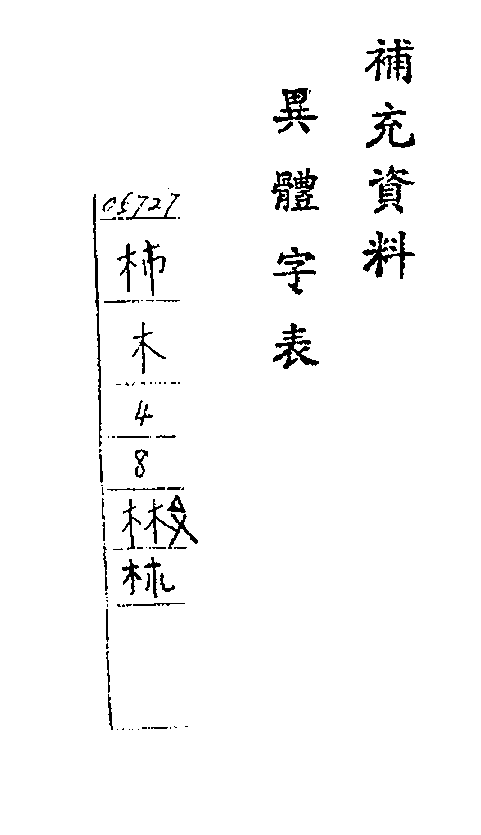 補充資料
異體字表
05727
杮
木
4
8